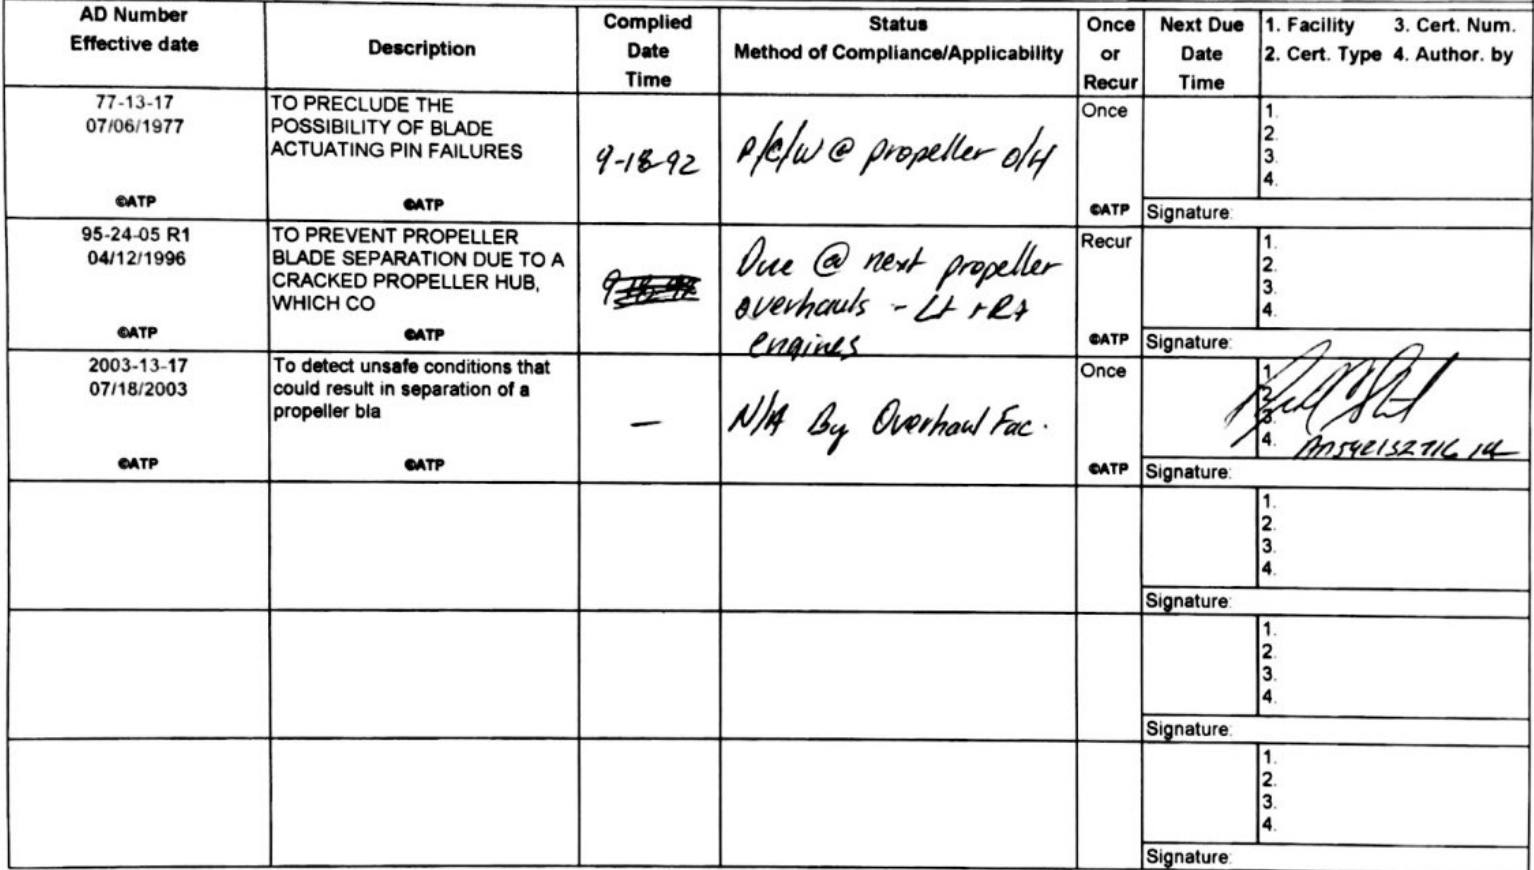 AD Number
Effective date
Description
Complied
Date
Time
Status
Method of Compliance/Applicability
Once
or
Recur
Next Due
Date
Time
1. Facility 3. Cert. Num.
2. Cert. Type 4. Author. by
77-13-17
07/06/1977
©ATP
TO PRECLUDE THE
POSSIBILITY OF BLADE
ACTUATING PIN FAILURES
©ATP
9-18-92
P/C/W @ propeller O/H
Once
©ATP
1.
2.
3.
4.
Signature:
95-24-05 R1
04/12/1996
©ATP
TO PREVENT PROPELLER
BLADE SEPARATION DUE TO A
CRACKED PROPELLER HUB,
WHICH CO
©ATP
Due @ next propeller
overhauls - Lt + Rt
engines
Recur
©ATP
1.
2.
3.
4.
Signature:
2003-13-17
07/18/2003
©ATP
To detect unsafe conditions that
could result in separation of a
propeller bla
©ATP
—
N/A By Overhaul Fac.
Once
©ATP
1.
2.
3.
4.
Signature:
1.
2.
3.
4.
Signature:
1.
2.
3.
4.
Signature:
1.
2.
3.
4.
Signature: